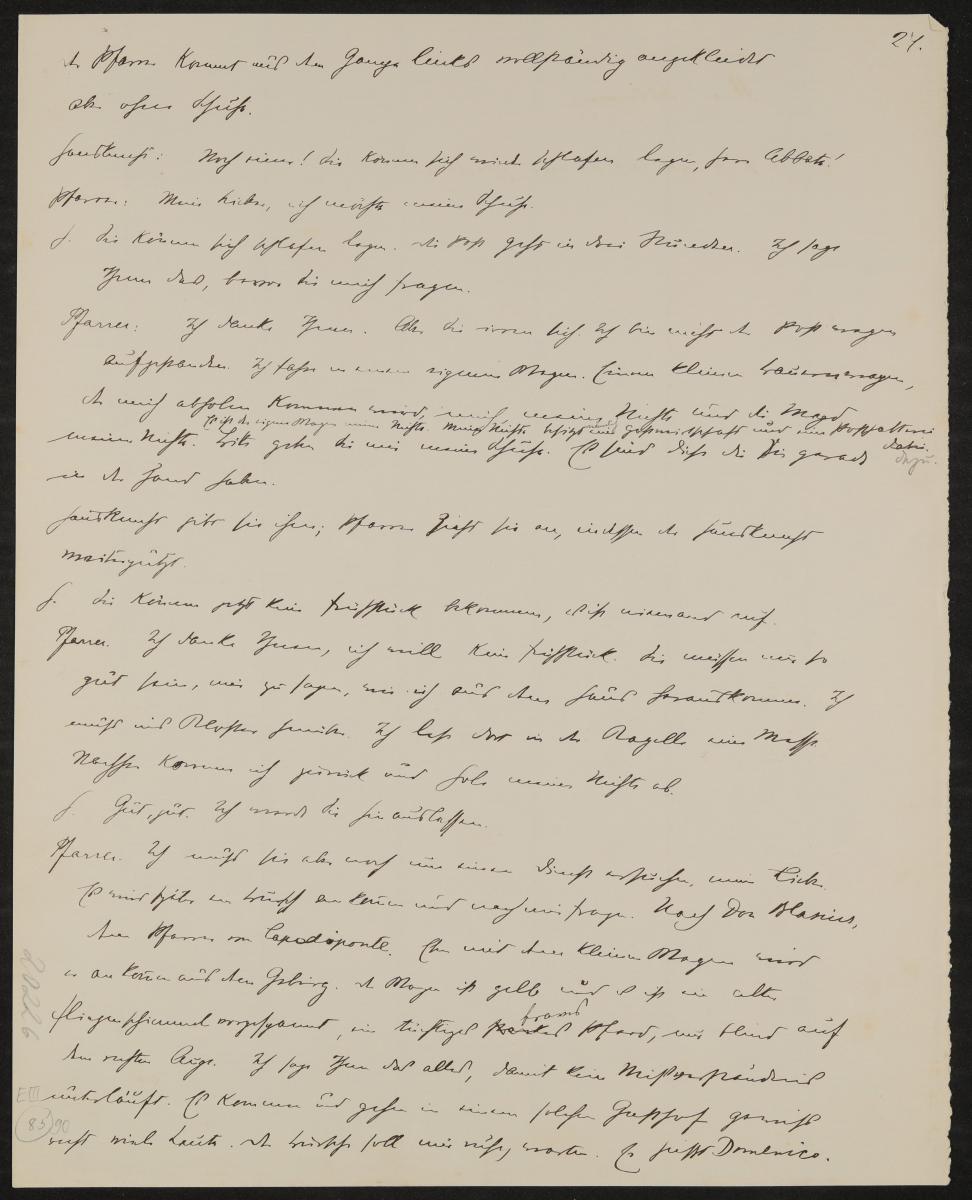 27.
der Pfarrer kommt aus dem Gange links vollständig angekleidet
aber ohne Schuhe.
Hausknecht: Noch einer! Sie können sich wieder schlafen legen, Herr Abbate!
Pfarrer: Mein Lieber, ich möchte meine Schuhe.
H. Sie können sich schlafen legen. die Post geht in drei Stunden. Ich sage
Ihnen das, bevor Sie mich fragen.
Pfarrer: Ich danke Ihnen. Aber Sie irren sich. Ich bin nicht der Post wegen
aufgestanden. Ich fahre in einem eigenen Wagen. Einem kleinen Bauernwagen,
der mich abholen kommen wird, mich, meine Nichte und die Magd
Es ist der eigene Wagen meiner Nichte. Meine Nichte besitzt eine Gastwirtschaft und eine Posthalterei
dabei.
meiner Nichte. Bitte geben Sie mir meine Schuhe. Es sind diese die Sie gerade
dazu.
in der Hand haben.
Hausknecht gibt sie ihm; Pfarrer zieht sie an, indessen der Hausknecht
weiterputzt.
H. Sie können jetzt kein Frühstück bekommen, es ist niemand auf.
Pfarrer. Ich danke Ihnen, ich will kein Frühstück. Sie müssen nur so
gut sein, mir zu sagen, wie ich aus dem Haus herauskomme. Ich
muß ins Kloster hinüber. Ich lese dort in der Kapelle eine Messe.
Nachher komme ich zurück und hole meine Nichte ab.
H. Gut, gut. Ich werde Sie hinauslassen.
Pfarrer. Ich muß Sie aber noch um einen Dienst ersuchen, mein Lieber.
Es wird später ein Bursch ankommen und nach mir fragen. Nach Don Blasius,
dem Pfarrer von Capodiponte. Er mit dem kleinen Wagen wird
er ankommen aus dem Gebirg. der Wagen ist gelb und es ist ein alter
Fliegenschimmel vorgespannt, ein tüchtiges
braves
Pferd, nur blind auf
dem rechten Auge. Ich sage Ihnen das alles, damit kein Missverständnis
unterläuft. Es kommen und gehen in einem solchen Gasthof gewiß
recht viele Leute. der Bursche soll nur ruhig warten. Er heißt Domenico.
20226
EIII
85
90